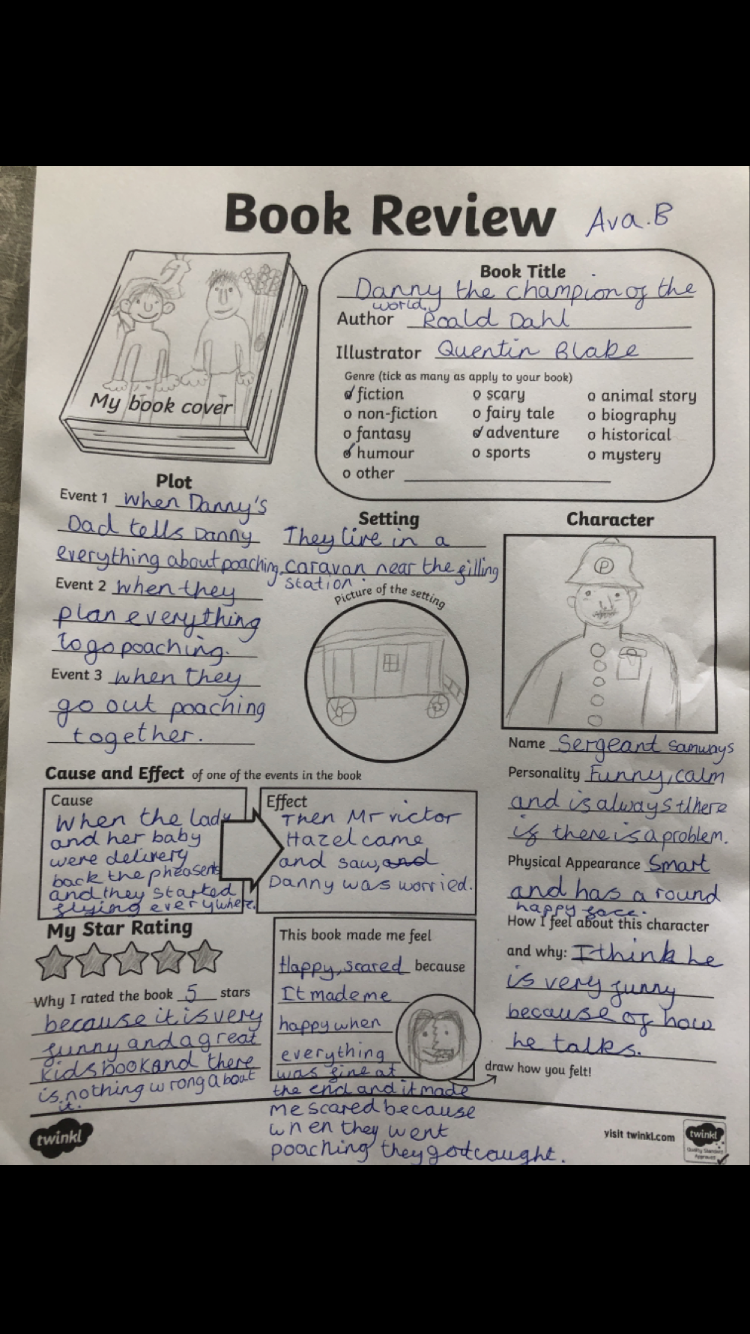 Book Review
Ava.B
My book cover
Book Title
Danny the champion of the
world
Author Roald Dahl
Illustrator Quentin Blake
Genre (tick as many as apply to your book)
fiction
o scary
o animal story
o non-fiction
o fairy tale
o biography
o fantasy
adventure
o historical
humour
o sports
o mystery
o other
Plot
Event 1 when Danny's
Dad tells Danny
everything about poaching.
Event 2 when they
plan everything
to go poaching.
Event 3 when they
go out poaching
together.
Setting
They live in a
caravan near the filling
station.
Picture of the setting
Character
P
Name Sergeant samways
Personality Funny, calm
and is always there
if there is a problem.
Physical Appearance Smart
and has a round
happy face.
How I feel about this character
and why: I think he
is very funny
because of how
he talks.
Cause and Effect of one of the events in the book
Cause
When the lady
and her baby
were delivery
back the pheasents
and they started
flying everywhere.
Effect
Then Mr victor
Hazel came
and saw, and
Danny was worried.
My Star Rating
Why I rated the book 5 stars
because it is very
funny and a great
kids book and there
is nothing wrong about
it.
This book made me feel
Happy, scared because
It made me
happy when
everything
was fine at
the end and it made
me scared because
when they went
poaching they got caught.
draw how you felt!
twinkl
visit twinkl.com
twinkl
Quality Standard
Approved